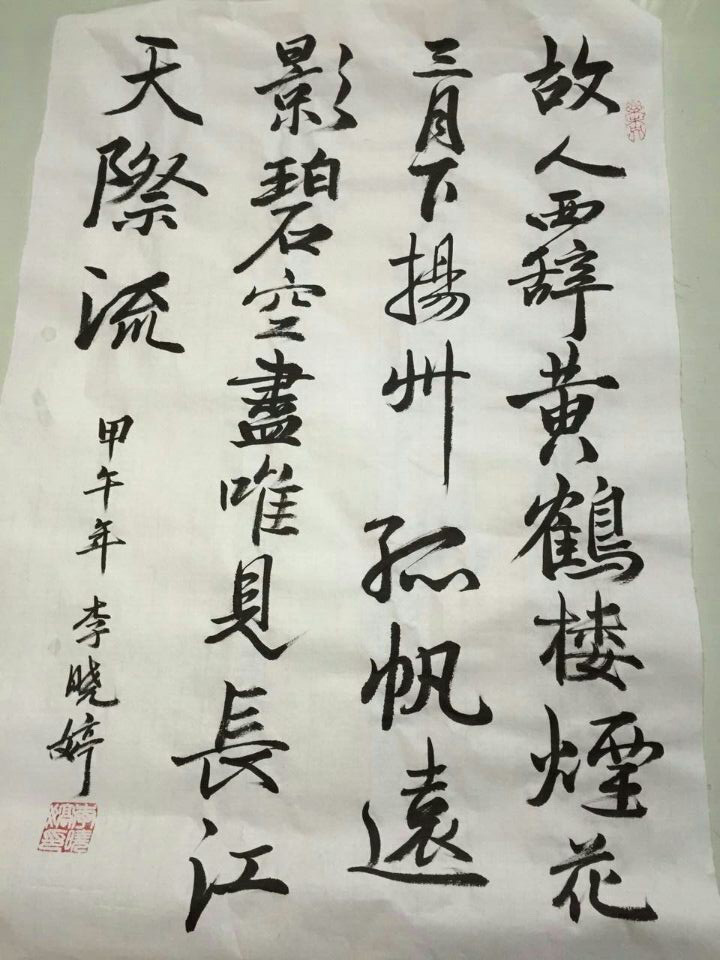 故人西辞黄鹤楼煙花
三月下揚州孤帆遠
影碧空盡唯見長江
天際流
甲午年李晓婷